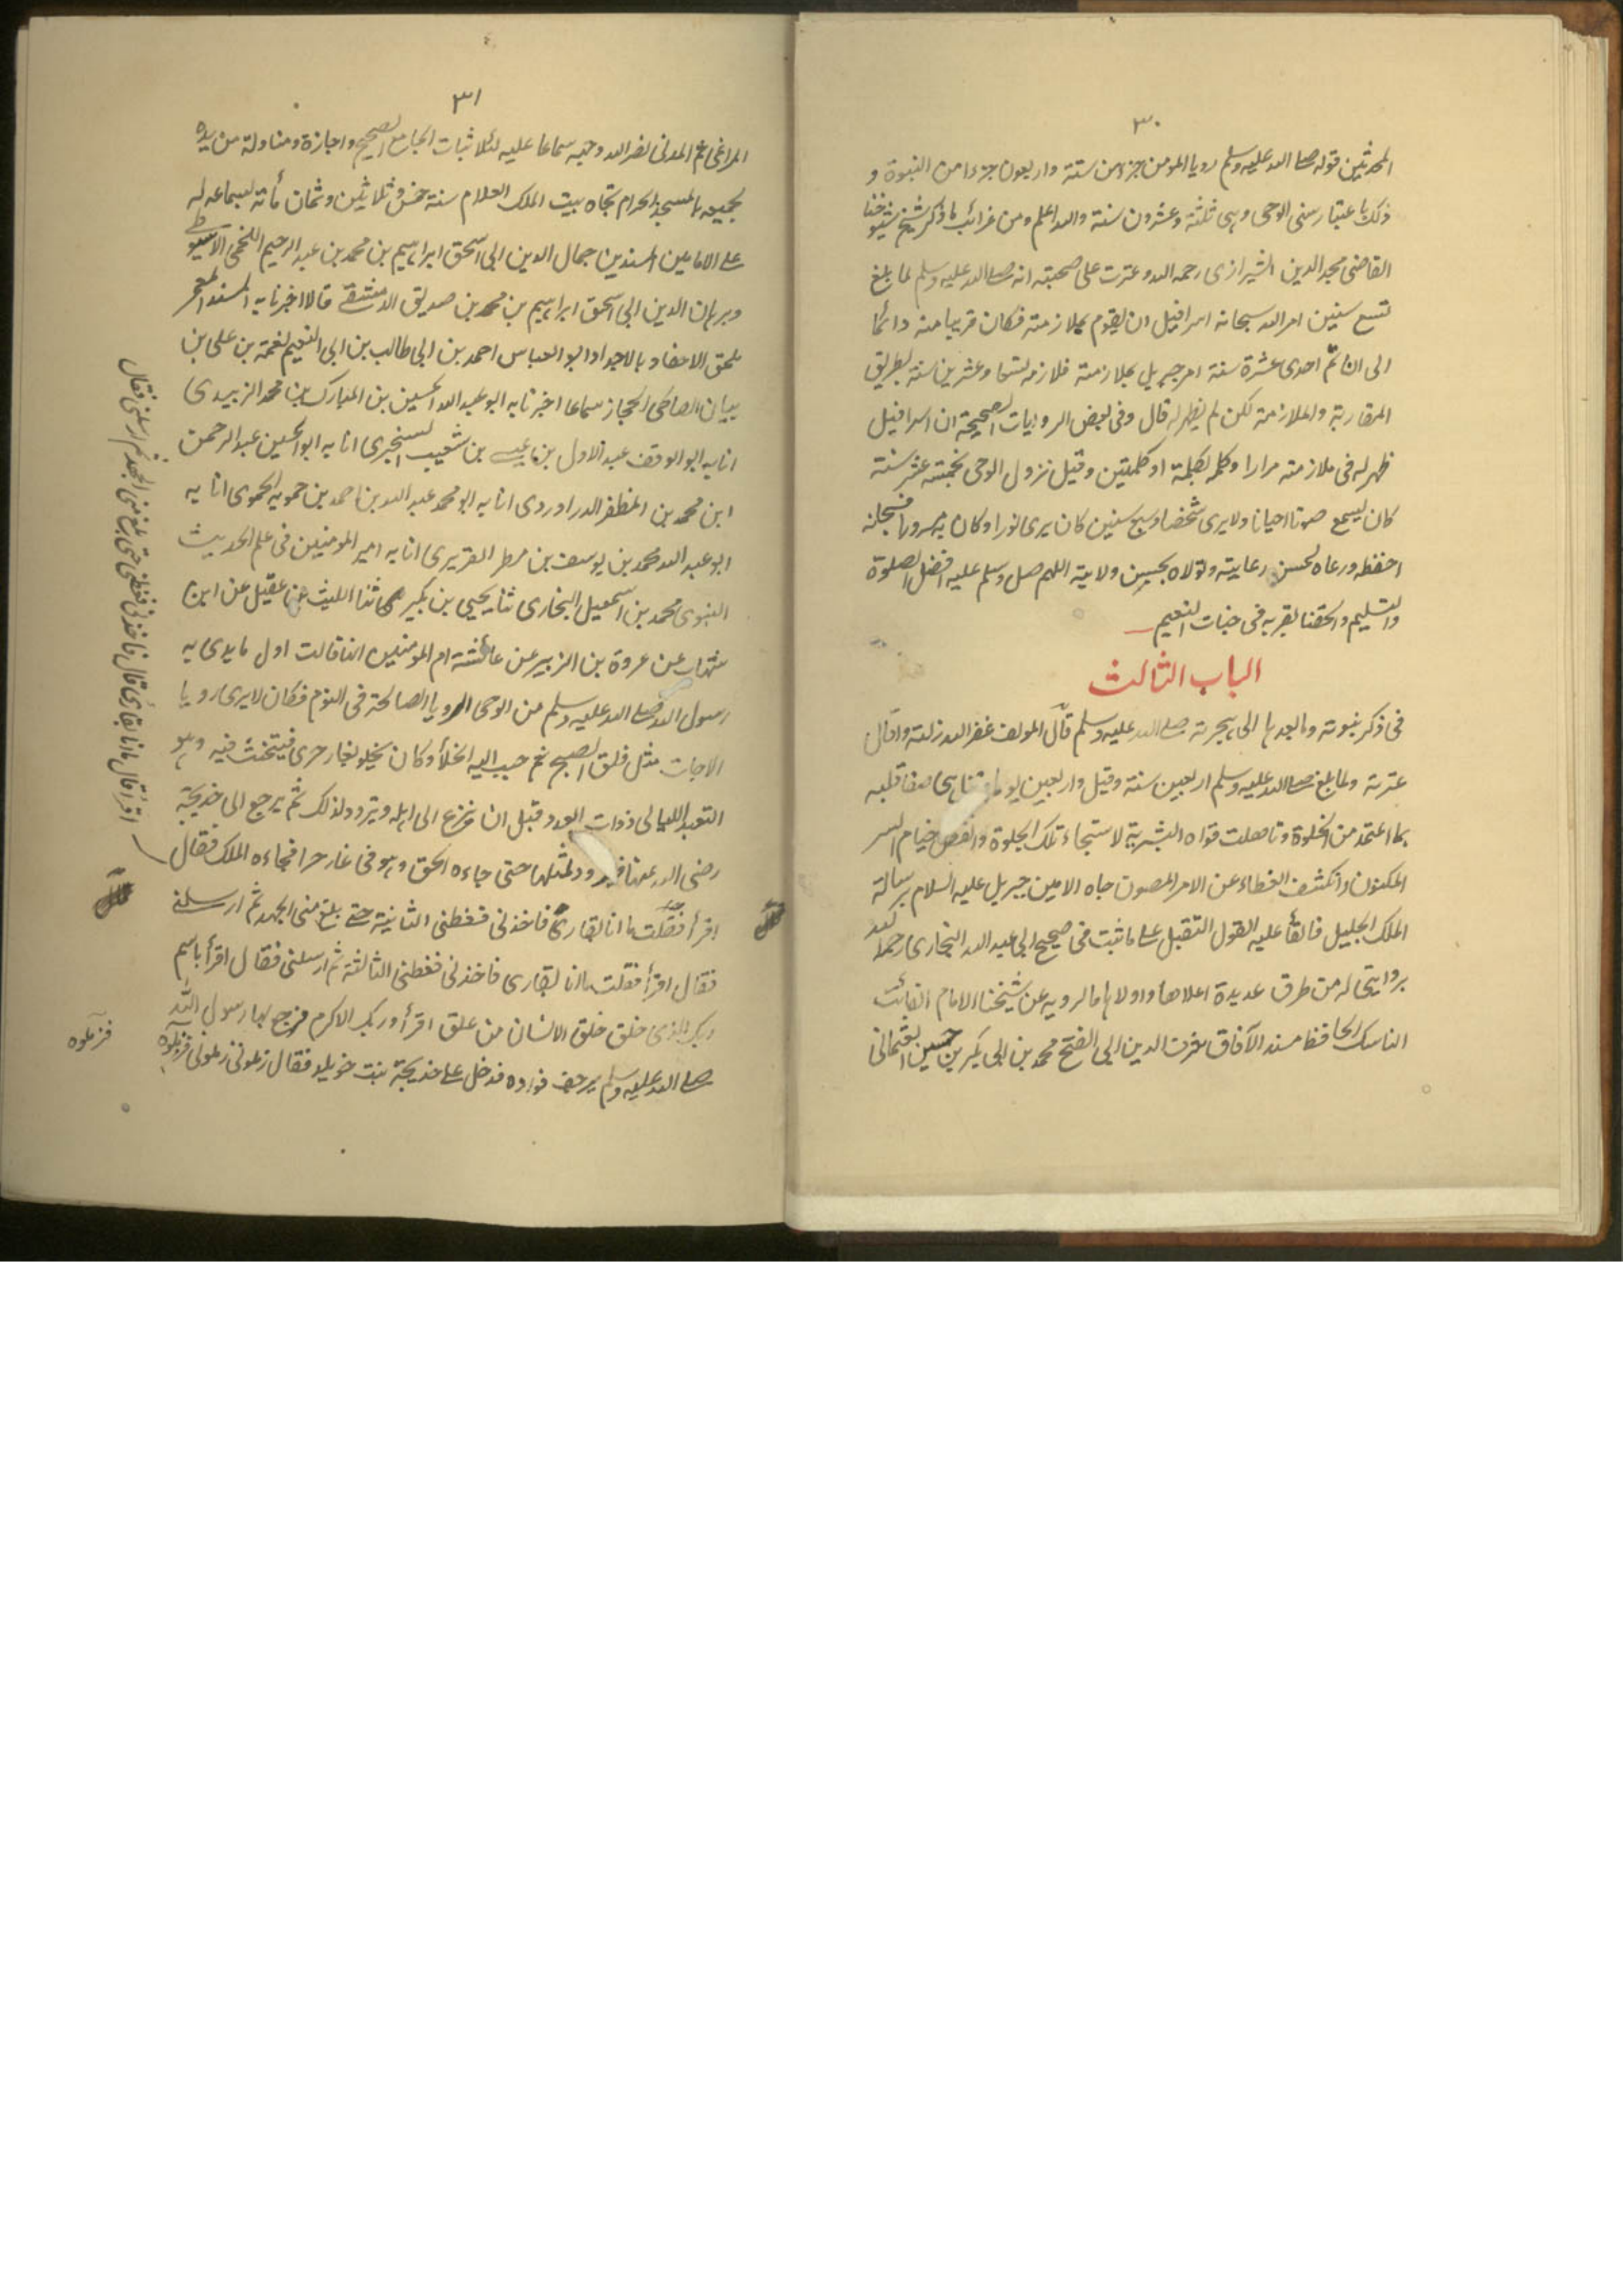 ٣٠
المحدثين قوله صلى الله عليه وسلم رويا المومن جزء من ستة واربعون جزءا من النبوة و
ذلك باعتبار سنى الوحى وہى ثلثة وعشرون سنة والله اعلم ومن غرائب ما ذكر شيخ شيوخنا
القاضى مجد الدين الشيرازى رحمه الله وعترت على صحبته انه صلى الله عليه وسلم لما بلغ
تسع سنين امر الله سبحانه اسرافيل ان يقوم بملازمته فكان قريبا منه دائما
الى ان تم احدى عشرة سنة امر جبريل بملازمته فلازمه تسعا وعشرين سنة بطريق
المقاربة والملازمة لكن لم يظهر له قال وفى بعض الروايات الصحيحة ان اسرافيل
ظهر له فى ملازمته مرارا وكلمه بكلمة او كلمتين وقيل نزول الوحى بخمسة عشر سنة
كان يسمع صوتا احيانا ولا يرى شخصا وسبع سنين كان يرى نورا وكان به مسرورا فسبحانه
احفظه ورعاه لحسن رعايته وتولاه بحسن ولايته اللهم صل وسلم عليه افضل الصلوة
والتسليم والحقنا بقربه فى جنات النعيم
الباب الثالث
فى ذكر نبوته وما بعدہا الى ہجرته صلى الله عليه وسلم قال المولف غفر الله زلته واقال
عثرته ولما بلغ صلى الله عليه وسلم اربعين سنة وقيل واربعين يوما وتناہى صفا قلبه
بما اعتمد من الخلوة وتاهلت قواه البشرية لاستجلاء تلك الجلوة وانفض ختام السر
المكنون وانكشف الغطاء عن الامر المصون جاه الامين جبريل عليه السلام برسالة
الملك الجليل فالقا عليه القول الثقيل على ما ثبت فى صحيح ابى عبد الله البخارى رحمه الله
بروايتى له من طرق عديدة اعلاها واولاہا ما ارويه عن شيخنا الامام القانت
الناسك الحافظ مسند الآفاق شرف الدين ابى الفتح محمد بن ابى بكر بن حسين العثمانى
٣١
المراغى ثم المدنى نضر الله وجهه سماعا عليه لثلاثيات الجامع الصحيح واجازة ومناولة من يده
لجميعه بالمسجد الحرام تجاه بيت الملك العلام سنة خمس وثلاثين وثمان مأته بسماعه له
على الامامين المسندين جمال الدين ابى اسحق ابراہيم بن محمد بن عبد الرحيم اللخمى الاسيوطى
وبرہان الدين ابى اسحق ابراہيم بن محمد بن صديق الدمشقى قالا اخبرنا به المسند المعمر
ملحق الاحفاد بالاجداد ابو العباس احمد بن ابى طالب بن ابى النعيم نعمة بن على بن
بيان الصالحى الحجار سماعا اخبرنا به ابو عبد الله الحسين بن المبارك بن محمد الزبيدى
انا به ابو الوقت عبد الاول بن عيسى بن شعيب السنجرى انا به ابو الحسين عبد الرحمن
ابن محمد بن المظفر الدراوردى انا به ابو محمد عبد الله بن احمد بن حمويه الحموى انا به
ابو عبد الله محمد بن يوسف بن مطر الفربرى انا به امير المومنين فى علم الحديث
النبوى محمد بن اسمعيل البخارى ثنا يحيى بن بكير ثنا الليث عن عقيل عن ابن
شہاب عن عروة بن الزبير عن عائشة ام المومنين انها قالت اول ما بدى به
رسول الله صلى الله عليه وسلم من الوحى الرويا الصالحة فى النوم فكان لا يرى رويا
الا جات مثل فلق الصبح ثم حبب اليه الخلا وكان يخلو بغار حرى فيتحنث فيه وہو
التعبد الليالى ذوات العدد قبل ان ينزع الى اہله ويتزود لذلك ثم يرجع الى خديجة
رضى الله عنها فيتزود لمثلها حتى جاءه الحق وہو فى غار حرا فجاءه الملك فقال
اقرأ فقلت ما انا بقارئ فاخذنى فغطنى الثانية حتى بلغ منى الجهد ثم ارسلنى
فقال اقرأ فقلت ما انا بقارى فاخذنى فغطنى الثالثة ثم ارسلنى فقال اقرأ باسم
ربك الذى خلق خلق الانسان من علق اقرأ وربك الاكرم فرجع بها رسول الله
صلى الله عليه وسلم يرجف فواده فدخل على خديجة بنت خويلد فقال زملونى زملونى فزملوه
اقرأ قال ما انا بقارئ قال فاخذنى فغطنى حتى بلغ منى الجهد ثم ارسلنى فقال
فزملوه